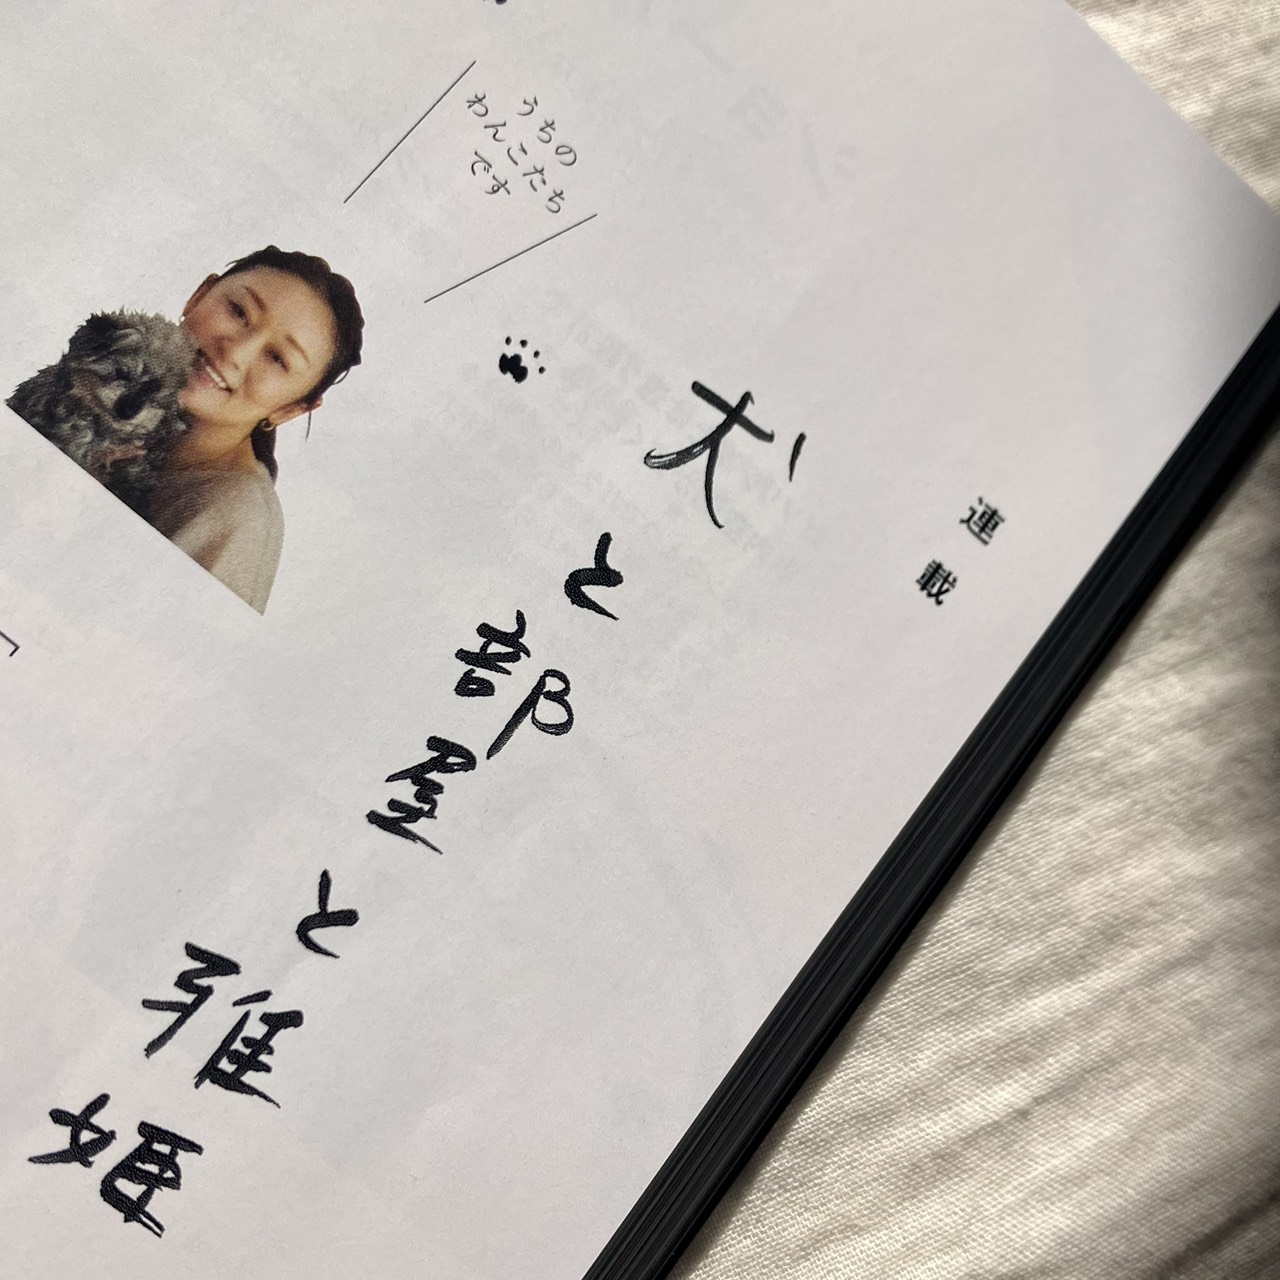 連載
犬と部屋と雅姫
うちの
わんこたち
です